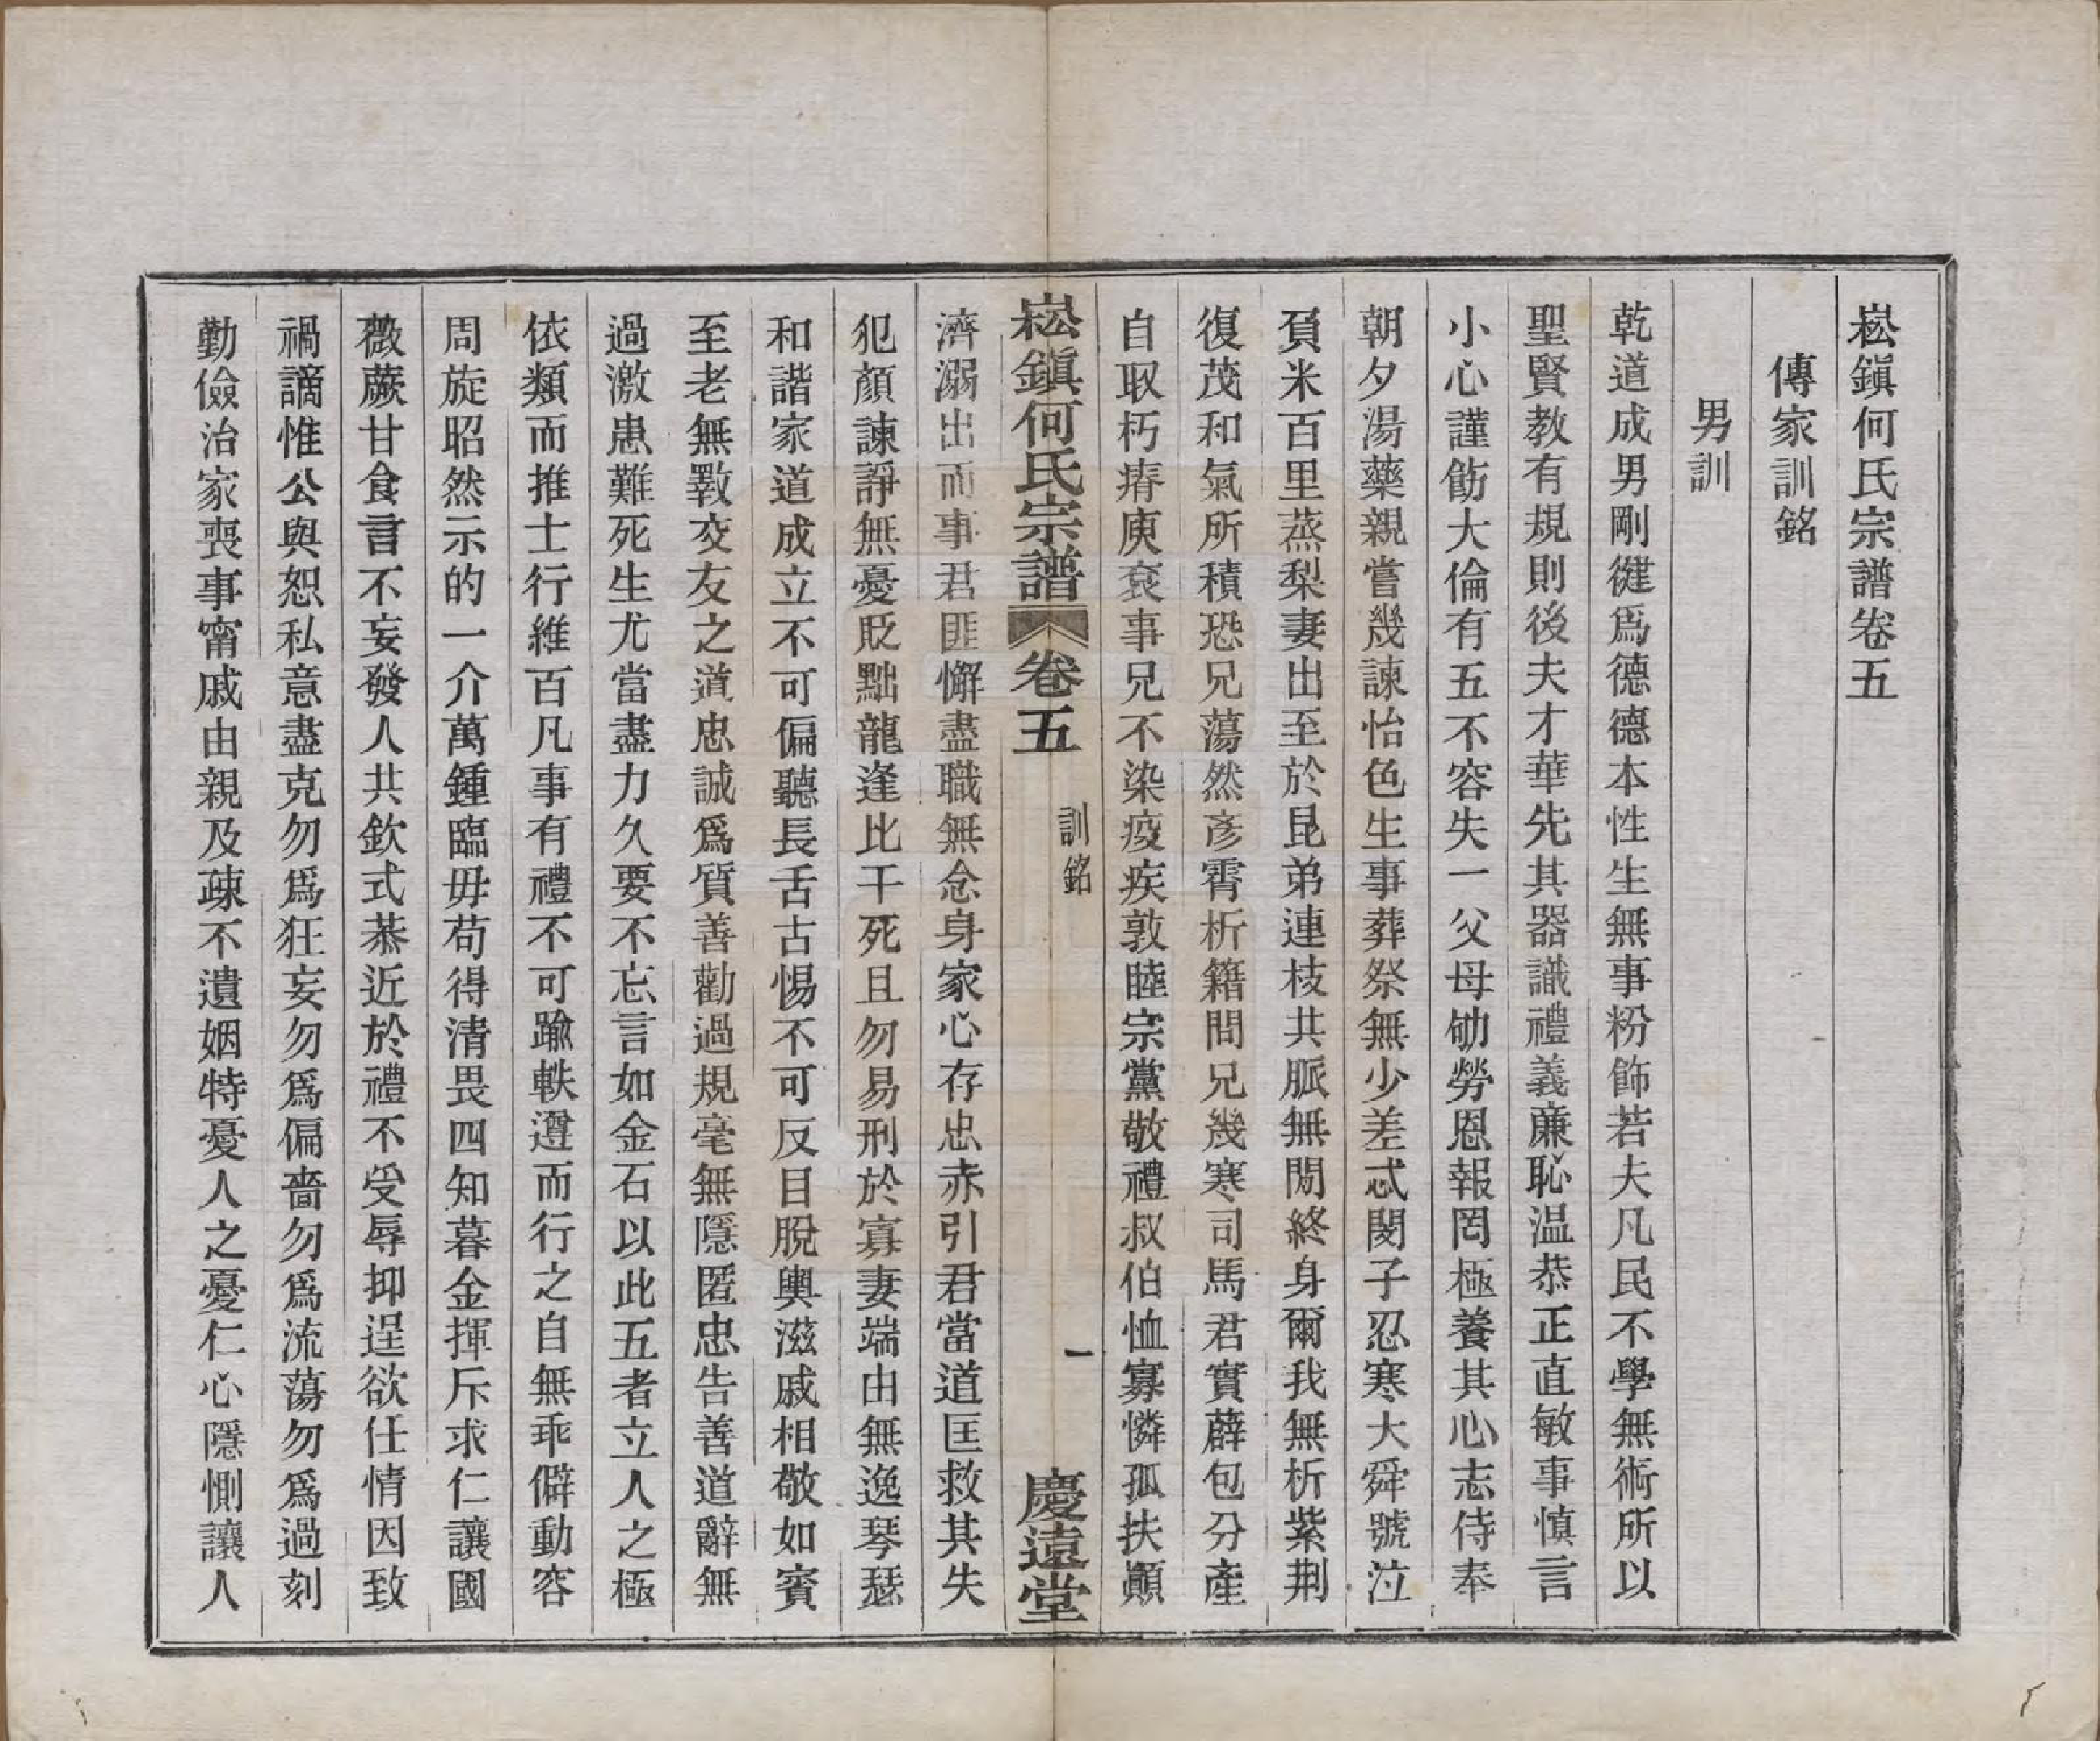 崧鎮何氏宗譜卷五
傳家訓銘
男訓
乾道成男剛健爲德德本性生無事粉飾若夫凡民不學無術所以
聖賢教有規則後夫才華先其器識禮義廉恥温恭正直敏事慎言
小心謹飭大倫有五不容失一父母劬勞恩報罔極養其心志侍奉
朝夕湯藥親嘗幾諫怡色生事葬祭無少差忒閔子忍寒大舜號泣
負米百里蒸梨妻出至於昆弟連枝共脈無間終身爾我無析紫荆
復茂和氣所積恐兄蕩然彥霄析籍問兄幾寒司馬君實薜包分產
自取朽瘠庾袞事兄不染疫疾敦睦宗黨敬禮叔伯恤寡憐孤扶顚
崧鎮何氏宗譜 卷五 訓銘 一 慶遠堂
濟溺出而事君匪懈盡職無念身家心存忠赤引君當道匡救其失
犯顏諫諍無憂貶黜龍逢比干死且勿易刑於寡妻端由無逸琴瑟
和諧家道成立不可偏聽長舌古惕不可反目脫輿滋戚相敬如賓
至老無斁交友之道忠誠爲質善勸過規毫無隱匿忠告善道辭無
過激患難死生尤當盡力久要不忘言如金石以此五者立人之極
依類而推士行維百凡事有禮不可踰軼遵而行之自無乖僻動容
周旋昭然示的一介萬鍾臨毋苟得清畏四知暮金揮斥求仁讓國
薇蕨甘食言不妄發人共欽式恭近於禮不受辱抑逞欲任情因致
禍謫惟公與恕私意盡克勿爲狂妄勿爲偏嗇勿爲流蕩勿爲過刻
勤儉治家喪事甯戚由親及疎不遺姻特憂人之憂仁心隱惻讓人